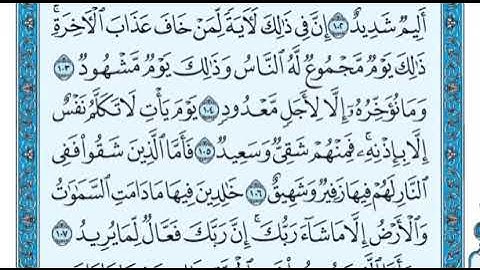 أَلِيمٌ شَدِيدٌ ۝١٠٢ إِنَّ فِي ذَٰلِكَ لَآيَةً لِّمَنْ خَافَ عَذَابَ الْآخِرَةِ ۚ
ذَٰلِكَ يَوْمٌ مَّجْمُوعٌ لَّهُ النَّاسُ وَذَٰلِكَ يَوْمٌ مَّشْهُودٌ ۝١٠٣
وَمَا نُؤَخِّرُهُ إِلَّا لِأَجَلٍ مَّعْدُودٍ ۝١٠٤ يَوْمَ يَأْتِ لَا تَكَلَّمُ نَفْسٌ
إِلَّا بِإِذْنِهِ ۚ فَمِنْهُمْ شَقِيٌّ وَسَعِيدٌ ۝١٠٥ فَأَمَّا الَّذِينَ شَقُوا فَفِي
النَّارِ لَهُمْ فِيهَا زَفِيرٌ وَشَهِيقٌ ۝١٠٦ خَالِدِينَ فِيهَا مَا دَامَتِ السَّمَاوَاتُ
وَالْأَرْضُ إِلَّا مَا شَاءَ رَبُّكَ ۚ إِنَّ رَبَّكَ فَعَّالٌ لِّمَا يُرِيدُ ۝١٠٧